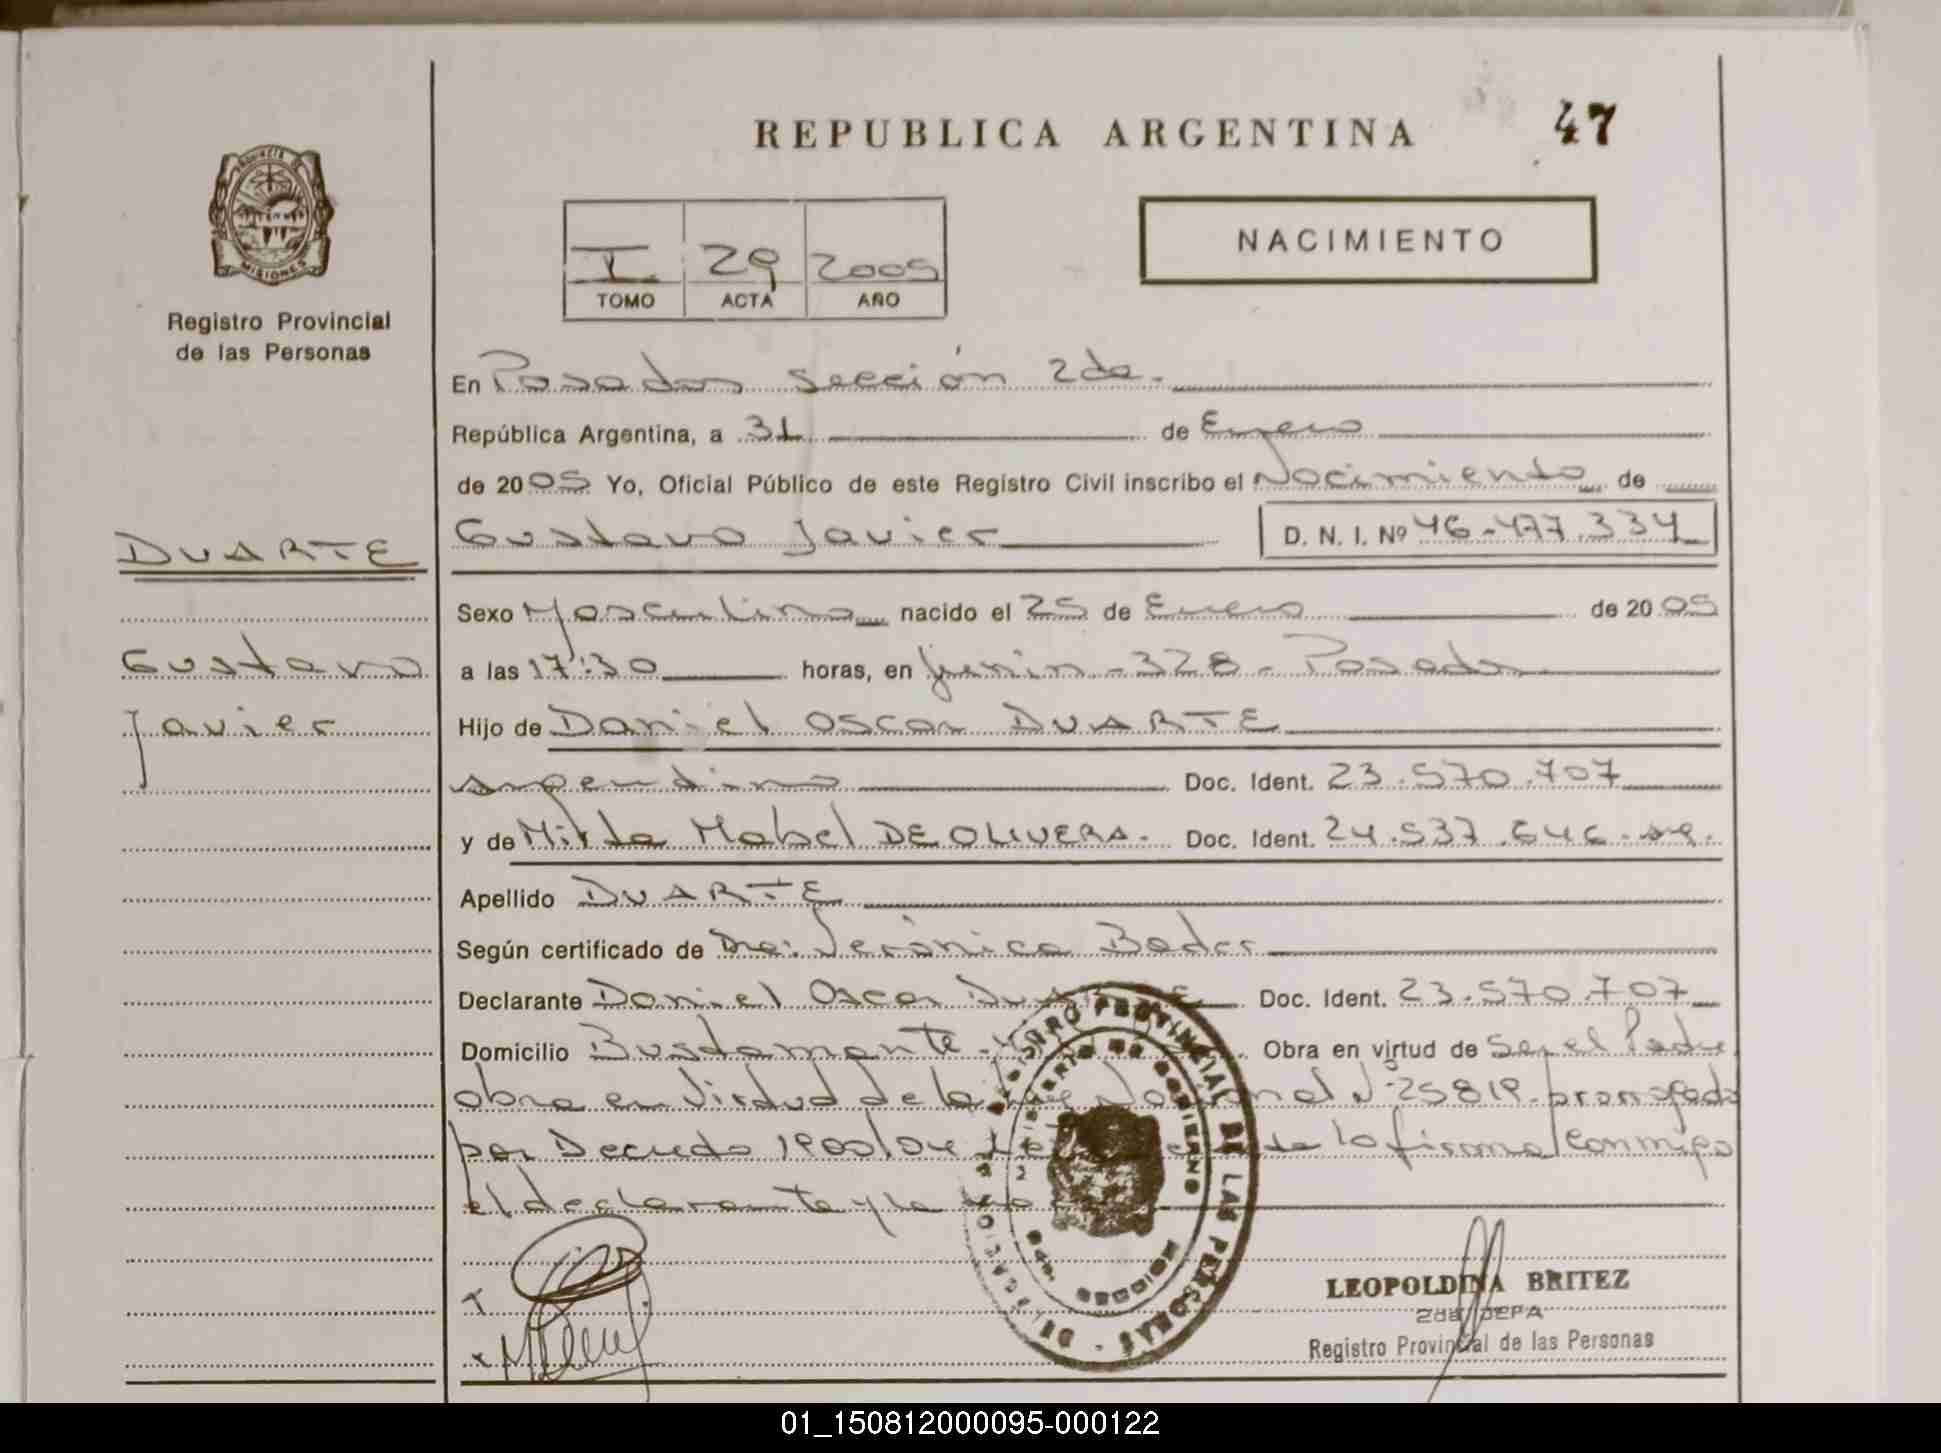 REPUBLICA ARGENTINA 47
PROVINCIA DE
MISIONES
Registro Provincial
de las Personas
I 29 2005
TOMO ACTA AÑO
NACIMIENTO
En Posadas Sección 2da.
República Argentina, a 31 de Enero
de 2005 Yo, Oficial Público de este Registro Civil inscribo el Nacimiento de
DUARTE
Gustavo Javier
Gustavo Javier D. N. I. Nº 46-477.334
Sexo Masculino nacido el 25 de Enero de 2005
a las 17:30 horas, en Junin - 328 - Posadas
Hijo de Daniel Oscar DUARTE
argentino Doc. Ident. 23.570.707
y de Mirta Mabel DE OLIVERA. Doc. Ident. 24.537.646. arg.
Apellido DUARTE
Según certificado de Dra: Verónica Bader
Declarante Daniel Oscar DUARTE Doc. Ident. 23.570.707
Domicilio Bustamante Obra en virtud de Ser el Padre
obra en Virtud de la Ley Nacional Nº 25819 prorrogada
por Decreto 1900/04 la firma conmigo
el declarante y la
REGISTRO PROVINCIAL DE LAS PERSONAS
MINISTERIO DE GOBIERNO
MISIONES
LEOPOLDINA BRITEZ
2da JEFA
Registro Provincial de las Personas
01_150812000095-000122